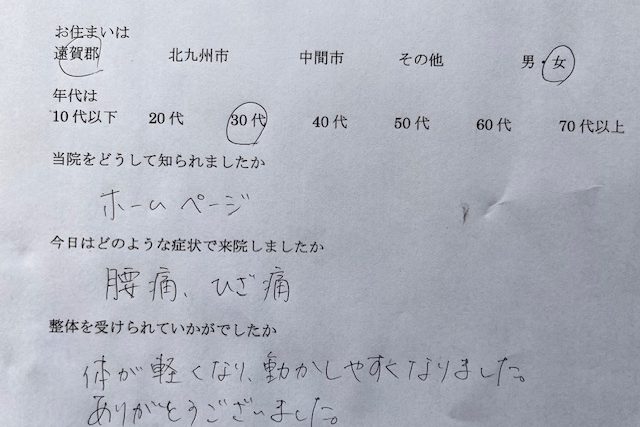 お住まいは
遠賀郡 北九州市 中間市 その他 男・女
年代は
10代以下 20代 30代 40代 50代 60代 70代以上
当院をどうして知られましたか
ホームページ
今日はどのような症状で来院しましたか
腰痛、ひざ痛
整体を受けられていかがでしたか
体が軽くなり、動かしやすくなりました。
ありがとうございました。